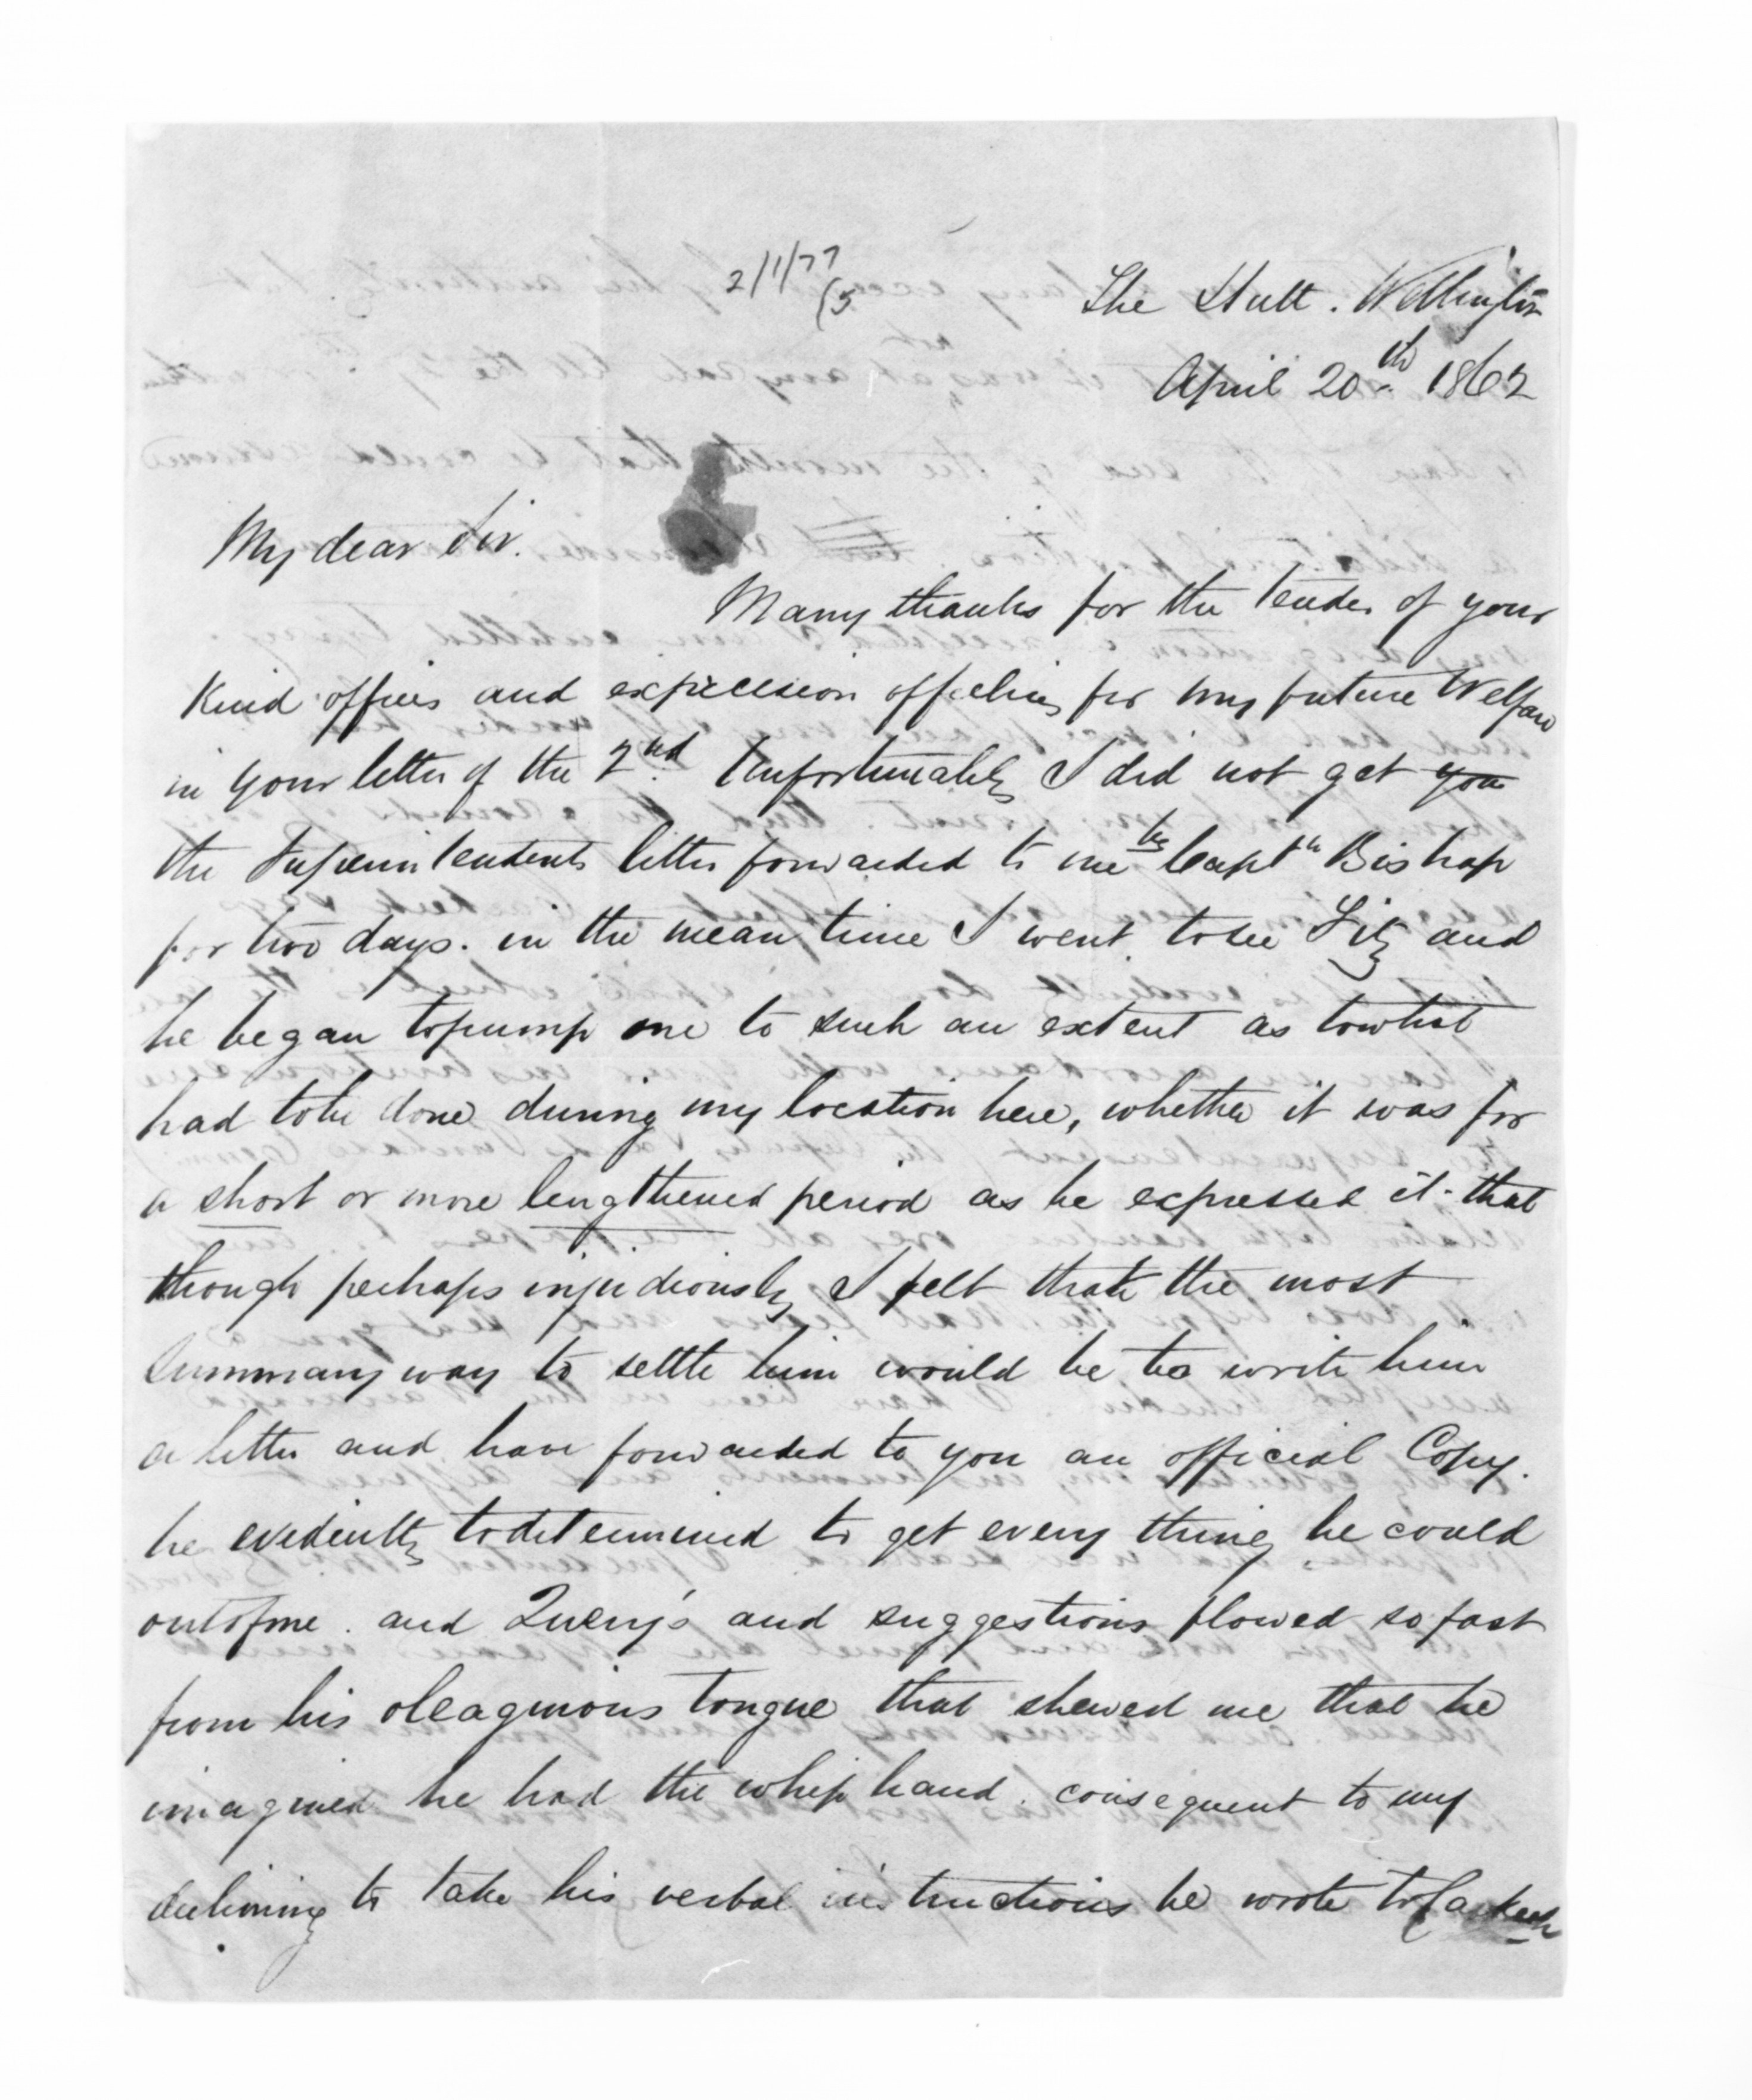 2/1/77
(5
The Hutt. Wellington
April 20th. 1862
My dear Sir.
Many thanks for the tender of your
Kind offices and expression of feeling for my future Welfare
in your letter of the 2nd. Unfortunately I did not get you
the Superintendents letter forwarded to me by Captn Bishop
for two days. in the mean time I went to see Fitz and
he began to pump me to such an extent as to what
had to be done during my location here, whether it was for
a short or more lengthened period as he expressed it. that
though perhaps injudiciously I felt that the most
summary way to settle him would be to write him
a letter and have forwarded to you an official Copy.
he evidently determined to get every thing he could
out of me. and Query's and suggestions flowed so fast
from his oleaginous tongue that shewed me that he
imagined he had the whip hand. consequent to my
declining to take his verbal instructions he wrote to